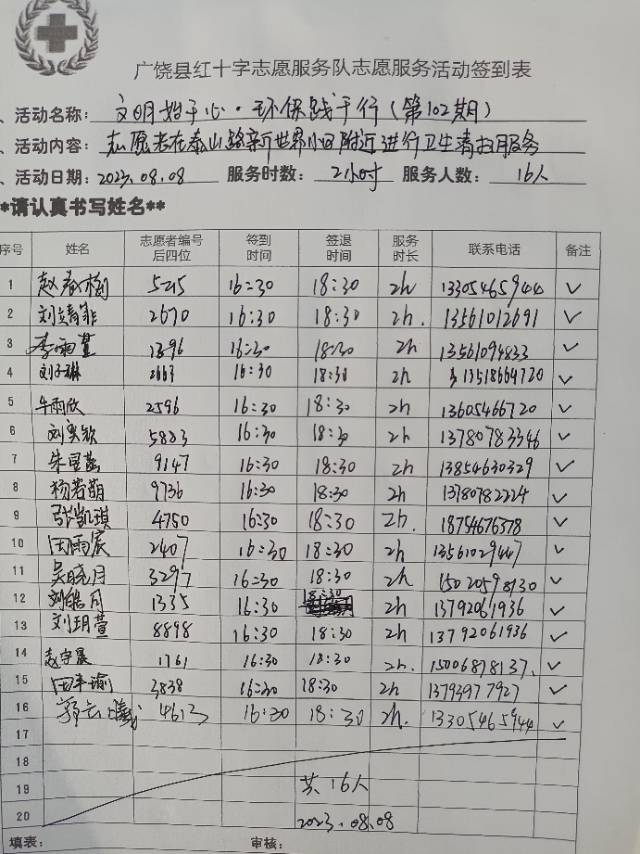 广饶县红十字志愿服务队志愿服务活动签到表
、活动名称: 文明始于心·环保践于行(第102期)
、活动内容: 志愿者在泰山路新世界小区附近进行卫生清扫服务
、活动日期: 2023.08.08 服务时数: 2小时 服务人数: 16人
*请认真书写姓名**
序号 姓名 志愿者编号后四位 签到时间 签退时间 服务时长 联系电话 备注
1 赵春梅 5215 16:30 18:30 2h 13305465944 ✓
2 刘靖菲 2670 16:30 18:30 2h. 13561012691 ✓
3 李雨堇 1396 16:30 18:30 2h 13561094833 ✓
4 刘子琳 2663 16:30 18:30 2h 13518664720 ✓
5 牛雨欣 2596 16:30 18:30 2h 13605466720 ✓
6 刘奕歆 5883 16:30 18:30 2h 13780783346 ✓
7 朱星 9147 16:30 18:30 2h 13854630329 ✓
8 杨若萌 9736 16:30 18:30 2h 13780782224 ✓
9 张凯琪 4750 16:30 18:30 2h. 18754676378 ✓
10 田雨宸 2407 16:30 18:30 2h 13561029447 ✓
11 吴晓月 3297 16:30 18:30 2h 15020598130 ✓
12 刘皓月 1335 16:30 18:30 2h 13792061936 ✓
13 刘玥萱 8898 16:30 18:30 2h 13792061936 ✓
14 赵宇晨 1761 16:30 18:30 2h. 15006878137. ✓
15 田佳瑜 3838 16:30 18:30 2h 13793977927 ✓
16 郭云曦 4613 16:30 18:30 2h. 13305465944 ✓
17
18
19 共16人
20 2023.08.08
填表: 审核: